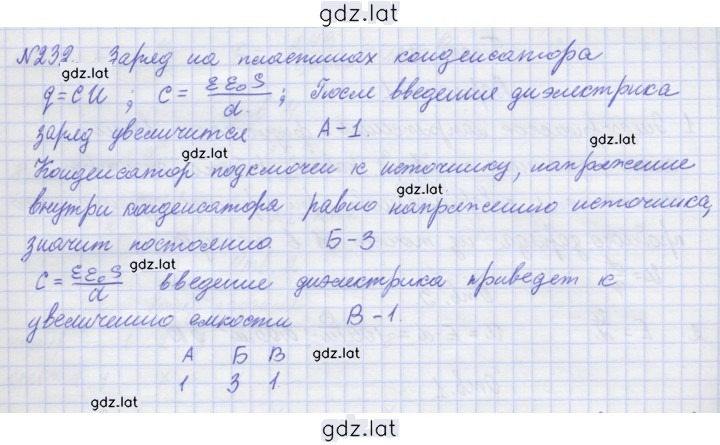 gdz.lat
№232. Заряд на пластинах конденсатора
gdz.lat
q=CU ; C = εε₀S/d ; После введения диэлектрика
заряд увеличится А-1
gdz.lat
gdz.lat
Конденсатор подключен к источнику, напряжение
gdz.lat
внутри конденсатора равно напряжению источника,
значит постоянно. Б-3
gdz.lat
C = εε₀S/d введение диэлектрика приведет к
увеличению емкости В-1.
А Б В gdz.lat
1 3 1
gdz.lat
gdz.lat